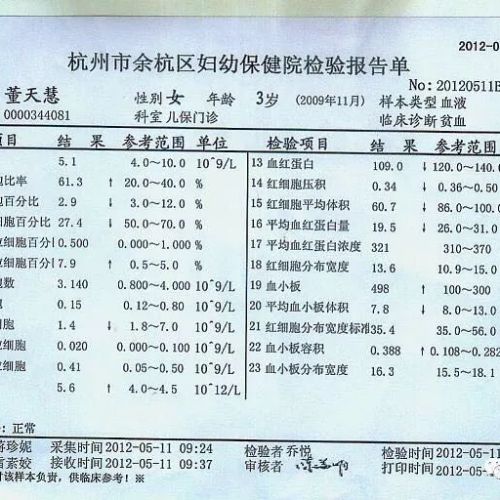 2012-0
杭州市余杭区妇幼保健院检验报告单
No: 20120511B
董天慧 性别 女 年龄 3岁 (2009年11月) 样本类型 血液
0000344081 科室 儿保门诊 临床诊断 贫血
项目 结 果 参考范围 单位 检验项目 结 果 参考范围
5.1 4.0～10.0 10^9/L 13 血红蛋白 109.0 ↓ 120.0～140.0
胞比率 61.3 ↑ 20.0～40.0 % 14 红细胞压积 0.34 ↓ 0.36～0.50
胞百分比 2.9 ↓ 3.0～12.0 % 15 红细胞平均体积 60.7 ↓ 86.0～100.0
细胞百分比 27.4 ↓ 50.0～70.0 % 16 平均血红蛋白量 19.5 ↓ 26.0～31.0
粒细胞百分 0.500 0.000～1.000 % 17 平均血红蛋白浓度 321 310～370
粒细胞百分 7.9 ↑ 0.5～5.0 % 18 红细胞分布宽度 13.6 10.9～15.0
胞数 3.140 0.800～4.000 10^9/L 19 血小板 498 ↑ 100～300
胞 0.15 0.12～0.80 10^9/L 20 平均血小板体积 7.8 ↓ 8.0～13.0
细胞 1.4 ↓ 1.8～7.0 10^9/L 21 红细胞分布宽度标准 35.4 35.0～56.0
粒细胞 0.020 0.000～0.100 10^9/L 22 血小板容积 0.388 ↑ 0.108～0.282
粒细胞 0.41 0.05～0.50 10^9/L 23 血小板分布宽度 16.3 15.5～18.1
5.6 ↑ 4.0～4.5 10^12/L
: 正常
蒋珍妮 采集时间 2012-05-11 09:24 检验者 乔悦 检验时间 2012-05-11
雷素姣 接收时间 2012-05-11 09:37 审核者 打印时间 2012-05-1
对该样本负责，供临床参考！※